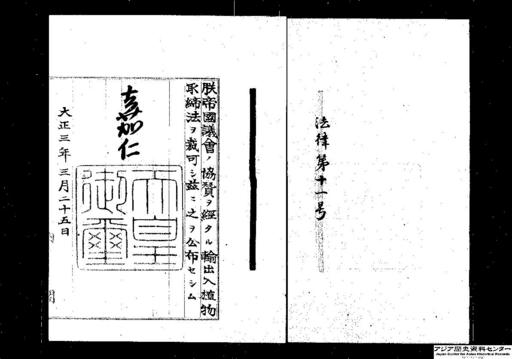 法律第十一号
朕帝國議會ノ協贊ヲ經タル輸出入植物
取締法ヲ裁可シ茲ニ之ヲ公布セシム
嘉仁
天皇
御璽
大正三年三月二十五日
内閣
アジア歴史資料センター
Japan Center for Asian Historical Records